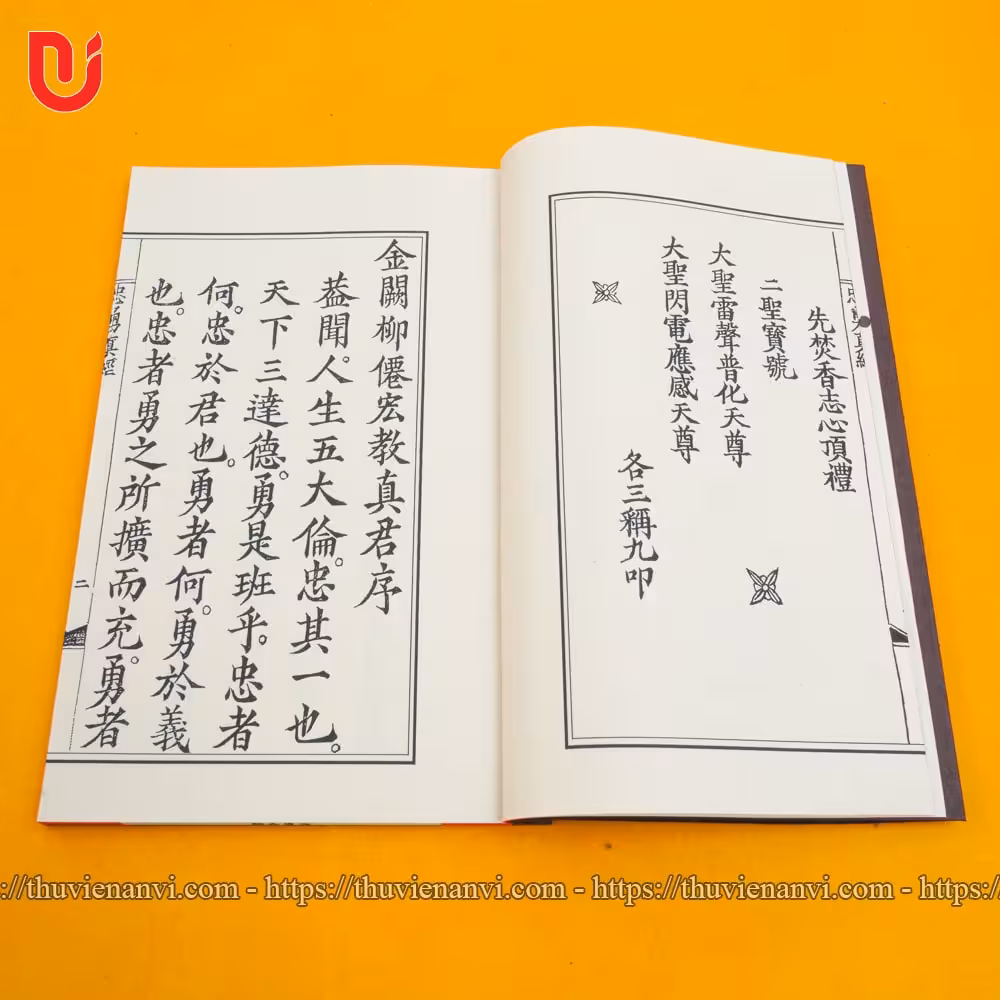 先焚香志心頂禮
二聖寶號
大聖雷聲普化天尊
大聖閃電應感天尊
各三稱九叩
金闕柳僊宏教真君序
葢聞。人生五大倫。忠其一也。
天下三達德。勇是班乎。忠者
何。忠於君也。勇者何。勇於義
也。忠者勇之所擴而充。勇者
忠勇真經
二
https://thuvienanvi.com - https://thuvienanvi.com - https://thuvienanvi.com